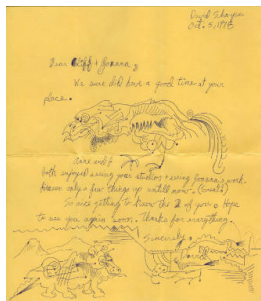 Oct. 5, 1978
Dear Cliff + Joanna,
We sure did have a good time at your
place.
both enjoyed seeing your studios + seeing Joanna's work.
only a few things up untill now.
So nice getting to know the 2 of you. Hope
to see you again soon. Thanks for everything.
Sincerely,
David